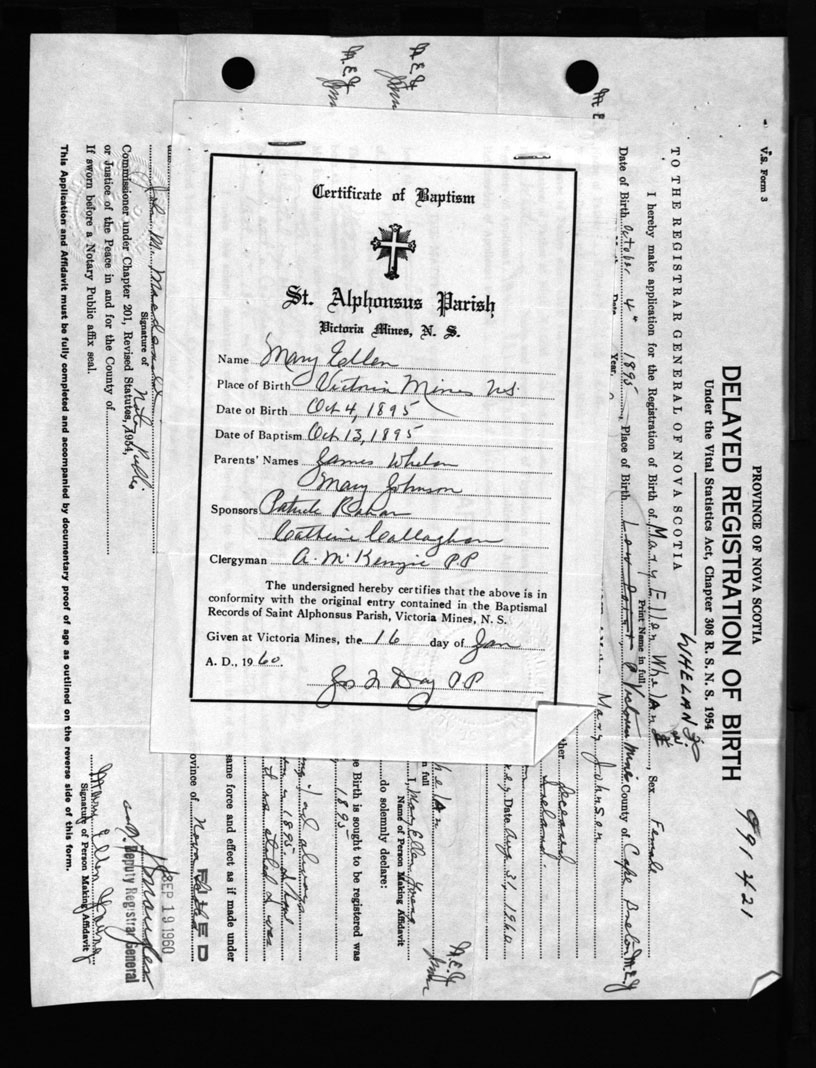 Certificate of Baptism
St. Alphonsus Parish
Victoria Mines, N. S.
Name Mary Ellen
Place of Birth Victoria Mines N.S.
Date of Birth Oct 4, 1895
Date of Baptism Oct 13, 1895
Parents' Names James Whelan
Mary Johnson
Sponsors Patrick
Catherine Callaghan
Clergyman A. McKenzie P.P.
The undersigned hereby certifies that the above is in
conformity with the original entry contained in the Baptismal
Records of Saint Alphonsus Parish, Victoria Mines, N. S.
Given at Victoria Mines, the 16 day of Jan
A. D., 1960.
Jos Day P.P.
V.S. Form 3
PROVINCE OF NOVA SCOTIA
991421
DELAYED REGISTRATION OF BIRTH
Under the Vital Statistics Act, Chapter 308 R. S. N. S. 1954
WHELAN
TO THE REGISTRAR GENERAL OF NOVA SCOTIA
I hereby make application for the Registration of Birth of Mary Ellen Whelan, Sex Female
Print Name in full
Date of Birth October 4" 1895, Place of Birth Low Point Victoria Mines County of Cape Breton M.E.Y
Date Year.
M E
Mary Johnson
ther deceased
Ireland.
Date Aug 31, 1960
M.E.Y
M.E.Y
helan
n full
M.E.Y
I, Mary Ellen
Name of Person Making Affidavit
do solemnly declare:
e Birth is sought to be registered was
1895
always
in 1895.
was
same force and effect as if made under
rovince of Nova
SEP 19 1960
John M.
Signature of Notary Public
Commissioner under Chapter 201, Revised Statutes, 1954,
or Justice of the Peace in and for the County of
Deputy Registrar General
If sworn before a Notary Public affix seal.
Mary Ellen
Signature of Person Making Affidavit
This Application and Affidavit must be fully completed and accompanied by documentary proof of age as outlined on the reverse side of this form.